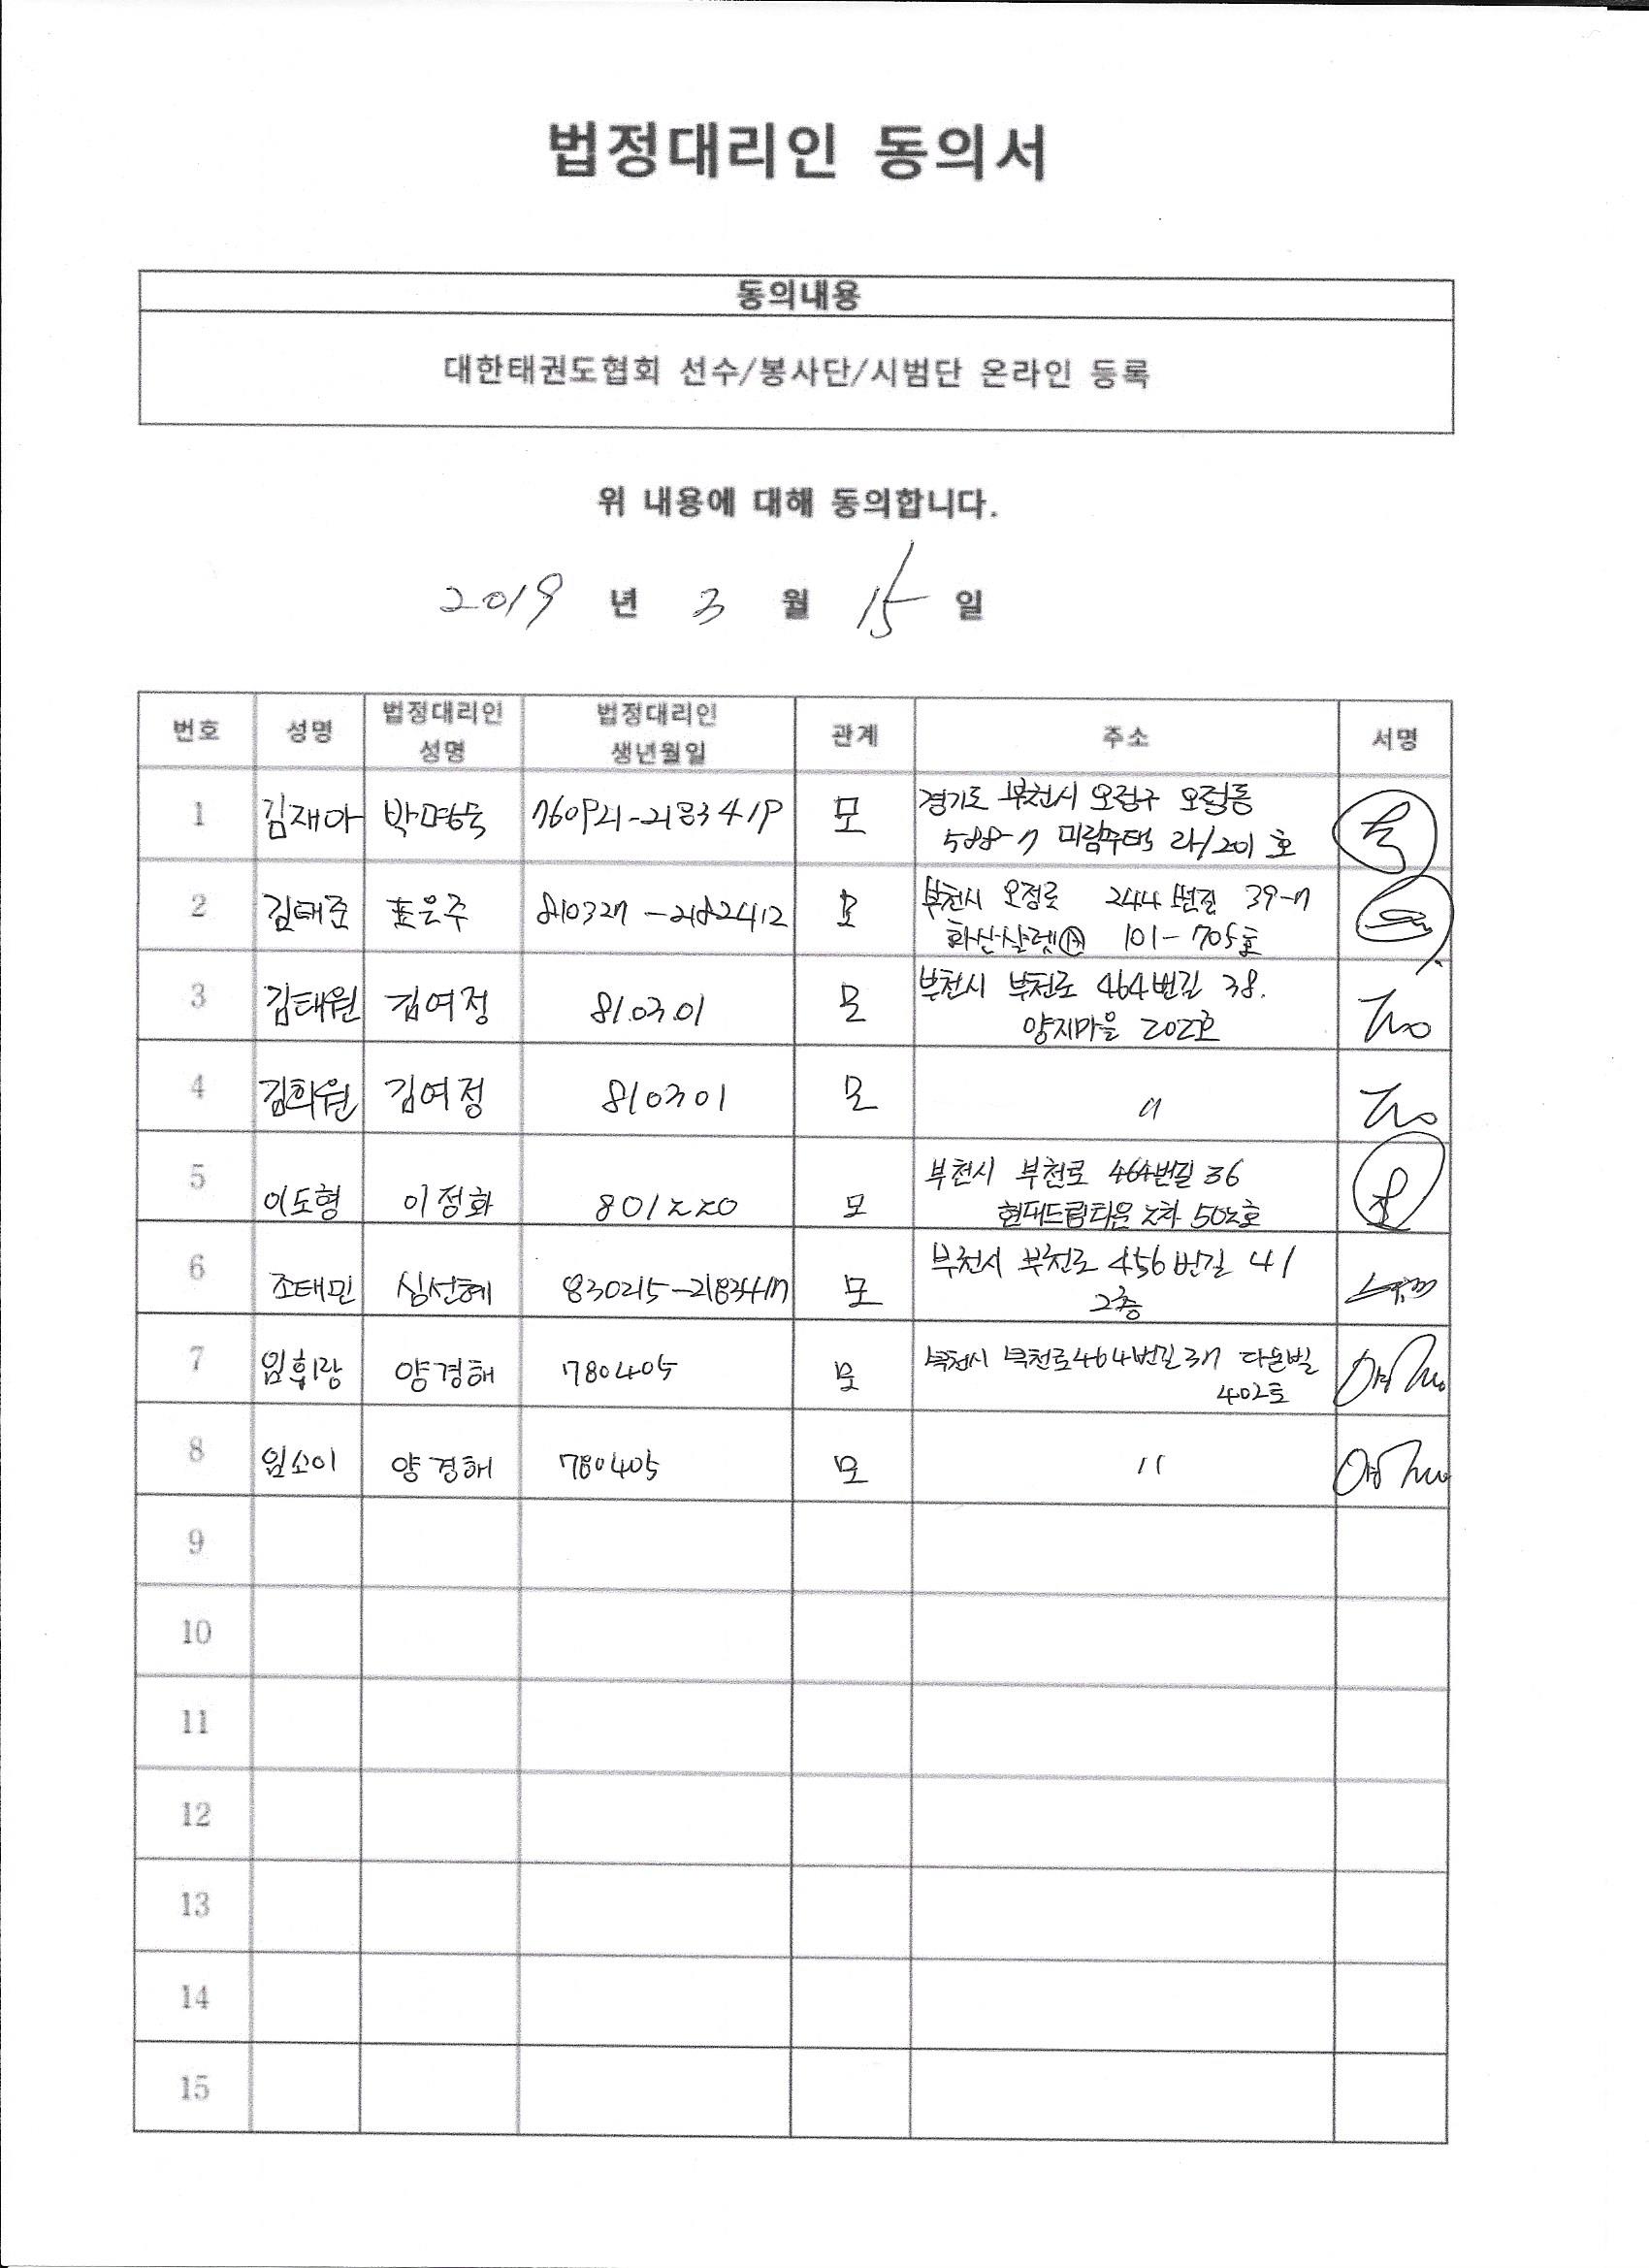 법정대리인 동의서
동의내용
대한태권도협회 선수/봉사단/시범단 온라인 등록
위 내용에 대해 동의합니다.
2019 년 3 월 15 일
번호 성명 법정대리인 성명 법정대리인 생년월일 관계 주소 서명
1 김재아 모 경기도 부천시 오정구 오정동
588-7 미림주택 라/201 호
2 김태준 표은주 810327-2182412 모 부천시 오정로 244번길 39-7
101-705호
3 김태원 김여정 81.03.01 모 부천시 부천로 464번길 38.
양지마을 202호
4 김희원 김여정 810301 모 〃
5 이도형 이정화 801220 모 부천시 부천로 464번길 36
현대드림타운 2차 502호
6 조태민 심선혜 모 부천시 부천로 456번길 41
2층
7 임휘랑 양경해 780405 모 부천시 부천로464번길37 다온빌
402호
8 임소이 양경해 780405 모 〃
9
10
11
12
13
14
15